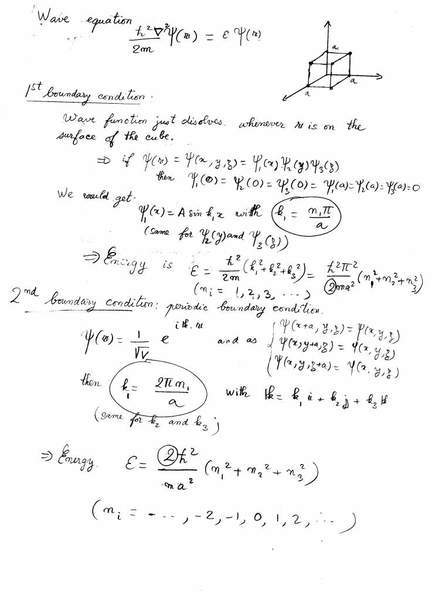 Wave equation
ħ²∇²/2m Ψ(r) = ε Ψ(r)
a
a
a
1st boundary condition.
Wave function just disolves. whenever r is on the
surface of the cube.
⇒ if Ψ(r) = Ψ(x, y, z) = Ψ₁(x) Ψ₂(y) Ψ₃(z)
then Ψ₁(0) = Ψ₂(0) = Ψ₃(0) = Ψ₁(a) = Ψ₂(a) = Ψ₃(a) = 0
We would get.
Ψ₁(x) = A sin k₁x with k₁ = n₁π/a
(same for Ψ₂(y) and Ψ₃(z))
⇒ Energy is ε = ħ²/2m (k₁² + k₂² + k₃²) = ħ²π²/2ma² (n₁² + n₂² + n₃²)
(nᵢ = 1, 2, 3, ...)
2nd boundary condition: periodic boundary condition.
Ψ(r) = 1/√V e^{ik.r} and as { Ψ(x+a, y, z) = Ψ(x, y, z)
Ψ(x, y+a, z) = Ψ(x, y, z)
Ψ(x, y, z+a) = Ψ(x, y, z)
then k₁ = 2πn₁/a with k = k₁ i + k₂ j + k₃ k
(same for k₂ and k₃)
⇒ Energy. ε = 2ħ²/ma² (n₁² + n₂² + n₃²)
(nᵢ = - --, -2, -1, 0, 1, 2, ...)